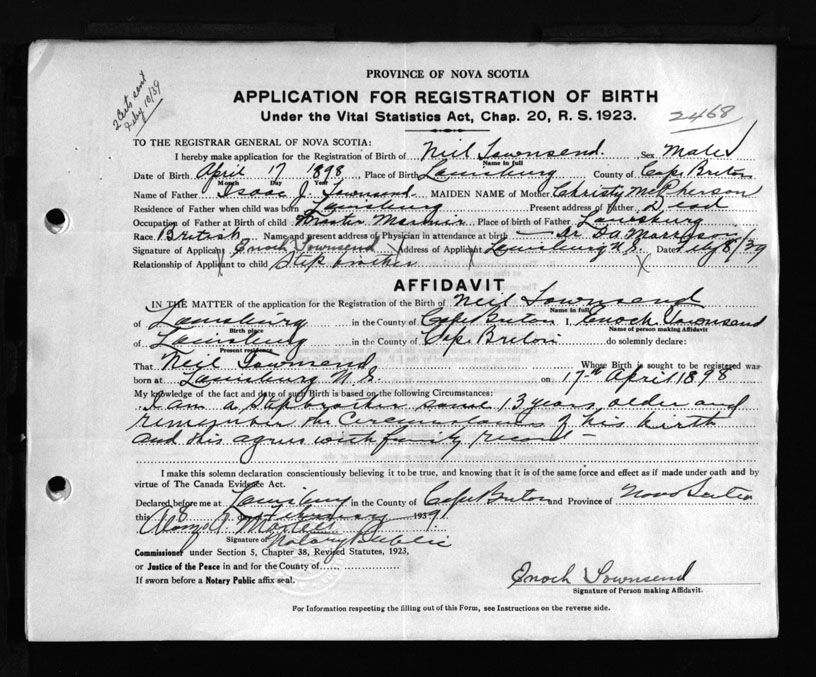 PROVINCE OF NOVA SCOTIA
APPLICATION FOR REGISTRATION OF BIRTH
Under the Vital Statistics Act, Chap. 20, R. S. 1923.
2 Certs sent
Feby 10/39
2468
TO THE REGISTRAR GENERAL OF NOVA SCOTIA:
I hereby make application for the Registration of Birth of Neil Townsend Sex Male
Name in full
Date of Birth April 17 1898 Place of Birth Louisburg County of Cape Breton
Month Day Year
Name of Father Isaac J. Townsend MAIDEN NAME of Mother Christy McPherson
Residence of Father when child was born Louisburg Present address of Father Dead
Occupation of Father at Birth of child Master Mariner Place of birth of Father Louisburg
Race British Name and present address of Physician in attendance at birth — Dr.
Signature of Applicant Enoch Townsend Address of Applicant Louisburg N.S. Date Feby 8/39
Relationship of Applicant to child Step brother
AFFIDAVIT
IN THE MATTER of the application for the Registration of the Birth of Neil Townsend
Name in full
of Louisburg in the County of Cape Breton I, Enoch Townsend
Birth place Name of person making Affidavit
of Louisburg in the County of Cape Breton do solemnly declare:
Present residence
That Neil Townsend Whose Birth is sought to be registered was
born at Louisburg N.S. on 17th April 1898
My knowledge of the fact and date of such Birth is based on the following Circumstances:
I am a Step brother some 13 years older and
remember the circumstances of his birth
and this agrees with family record —
I make this solemn declaration conscientiously believing it to be true, and knowing that it is of the same force and effect as if made under oath and by
virtue of The Canada Evidence Act.
Declared before me at Louisburg in the County of Cape Breton and Province of Nova Scotia
this 8 day February 1939
Signature of Notary Public
Commissioner under Section 5, Chapter 38, Revised Statutes, 1923,
or Justice of the Peace in and for the County of
If sworn before a Notary Public affix seal.
Enoch Townsend
Signature of Person making Affidavit.
For Information respecting the filling out of this Form, see Instructions on the reverse side.